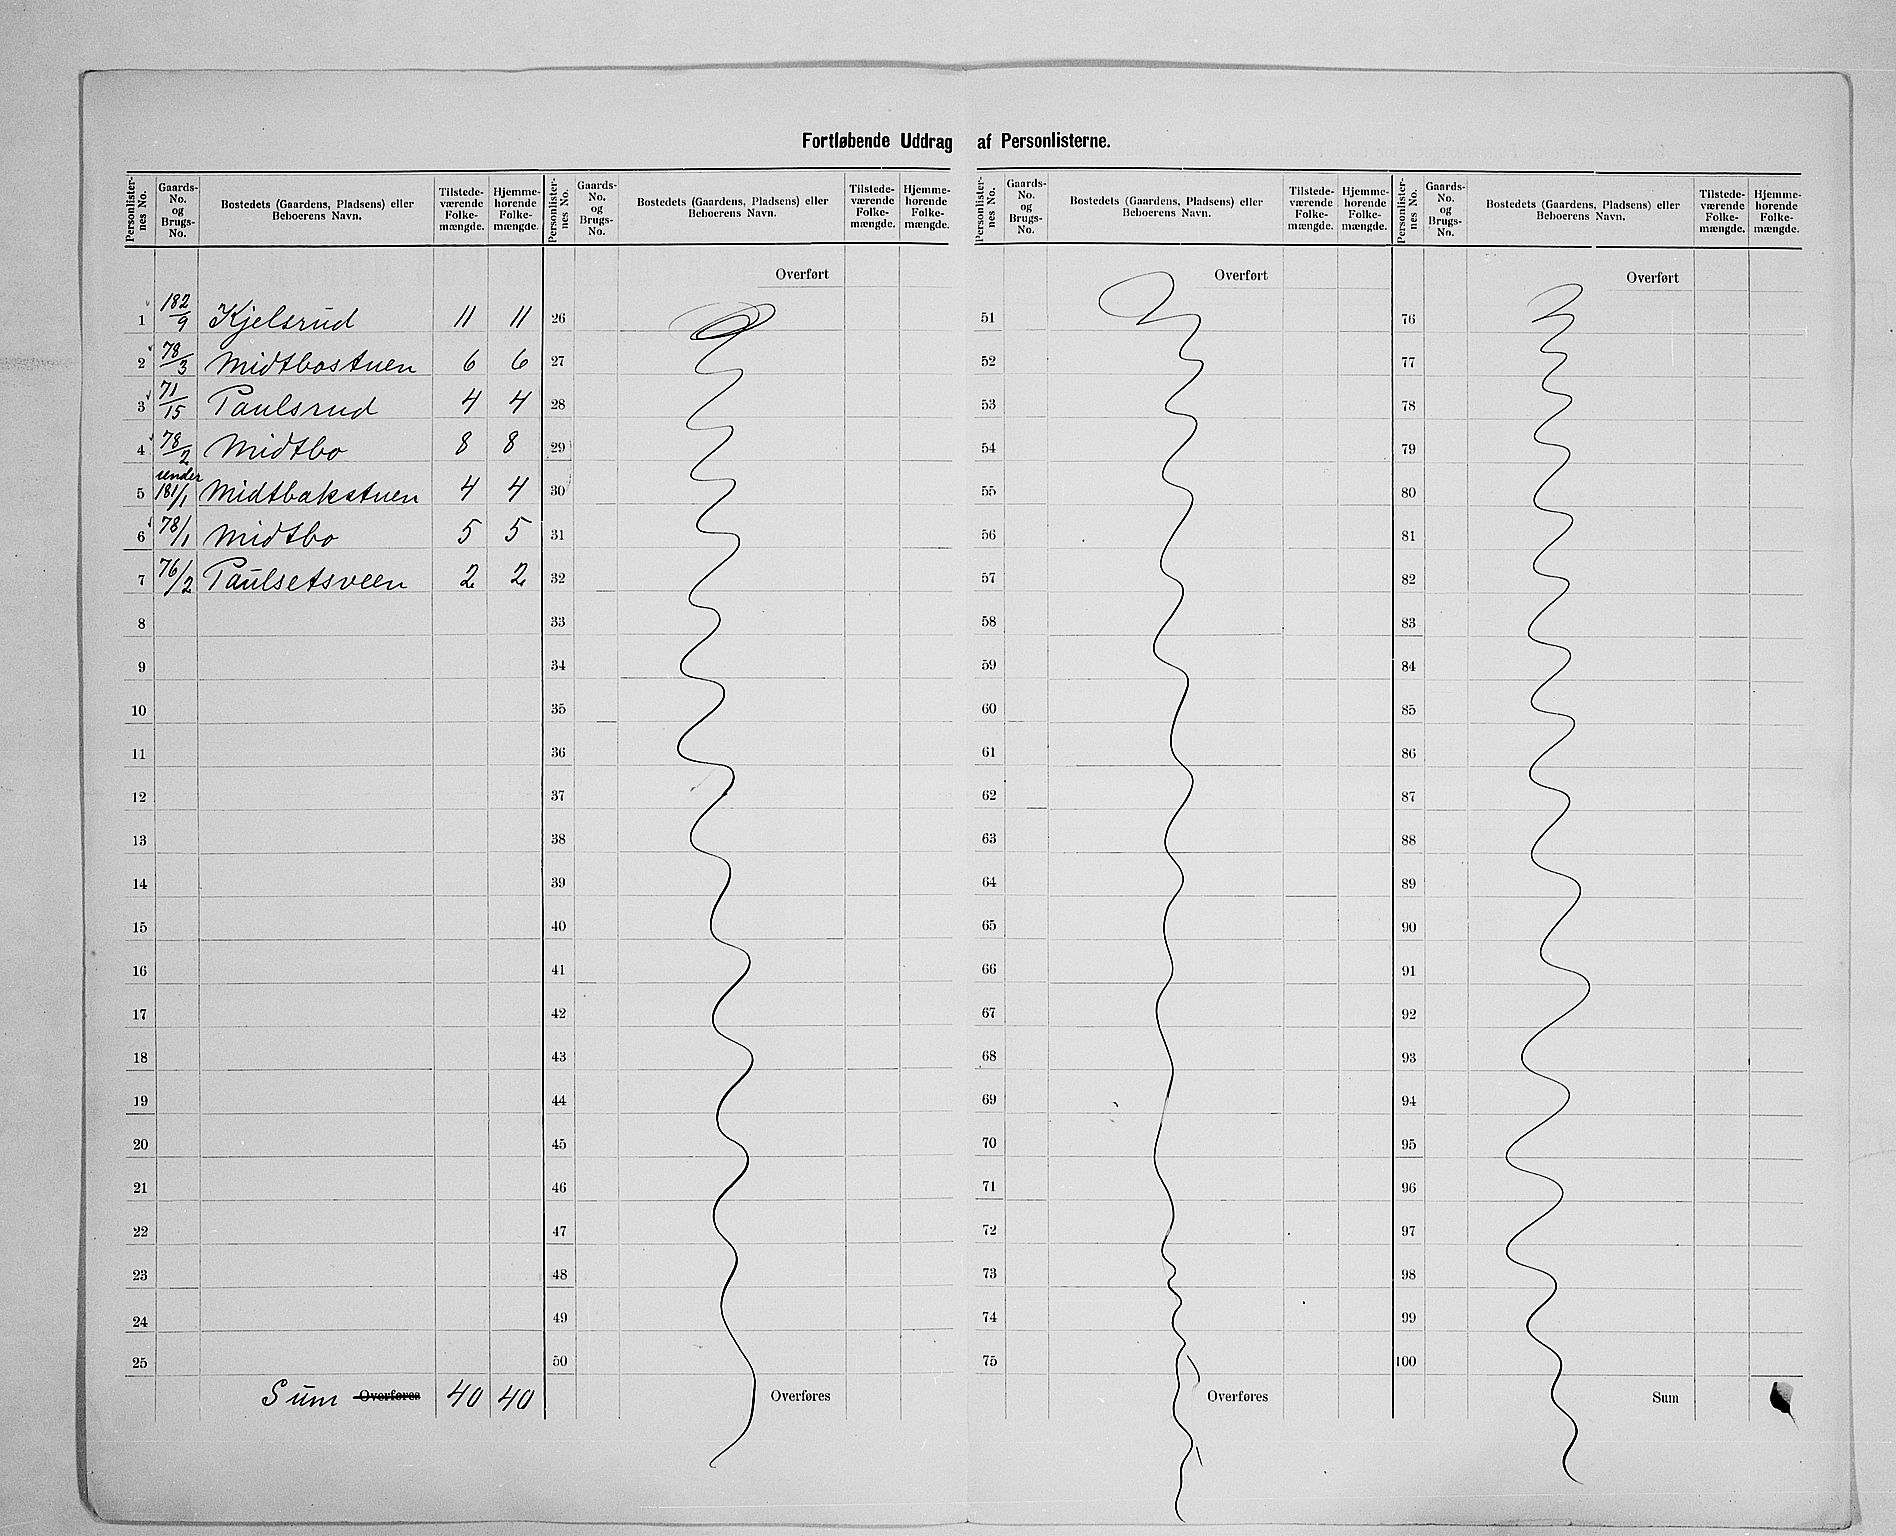 Fortløbende Uddrag af Personlisterne.
Personlister-nes No. | Gaards-No. og Brugs-No. | Bostedets (Gaardens, Pladsens) eller Beboerens Navn. | Tilstede-værende Folke-mængde. | Hjemme-hørende Folke-mængde.
Personlister-nes No. | Gaards-No. og Brugs-No. | Bostedets (Gaardens, Pladsens) eller Beboerens Navn. | Tilstede-værende Folke-mængde. | Hjemme-hørende Folke-mængde.
Personlister-nes No. | Gaards-No. og Brugs-No. | Bostedets (Gaardens, Pladsens) eller Beboerens Navn. | Tilstede-værende Folke-mængde. | Hjemme-hørende Folke-mængde.
Personlister-nes No. | Gaards-No. og Brugs-No. | Bostedets (Gaardens, Pladsens) eller Beboerens Navn. | Tilstede-værende Folke-mængde. | Hjemme-hørende Folke-mængde.
Overført Overført Overført
1 182/9 Kjelsrud 11 11 26 51 76
2 78/3 Midtbostuen 6 6 27 52 77
3 71/15 Paulsrud 4 4 28 53 78
4 78/2 Midtbo 8 8 29 54 79
5 under 181/1 Midtbakstuen 4 4 30 55 80
6 78/1 Midtbo 5 5 31 56 81
7 76/2 Paulsetsveen 2 2 32 57 82
8 33 58 83
9 34 59 84
10 35 60 85
11 36 61 86
12 37 62 87
13 38 63 88
14 39 64 89
15 40 65 90
16 41 66 91
17 42 67 92
18 43 68 93
19 44 69 94
20 45 70 95
21 46 71 96
22 47 72 97
23 48 73 98
24 49 74 99
25 50 75 100
Sum Overføres 40 40 Overføres Overføres Sum